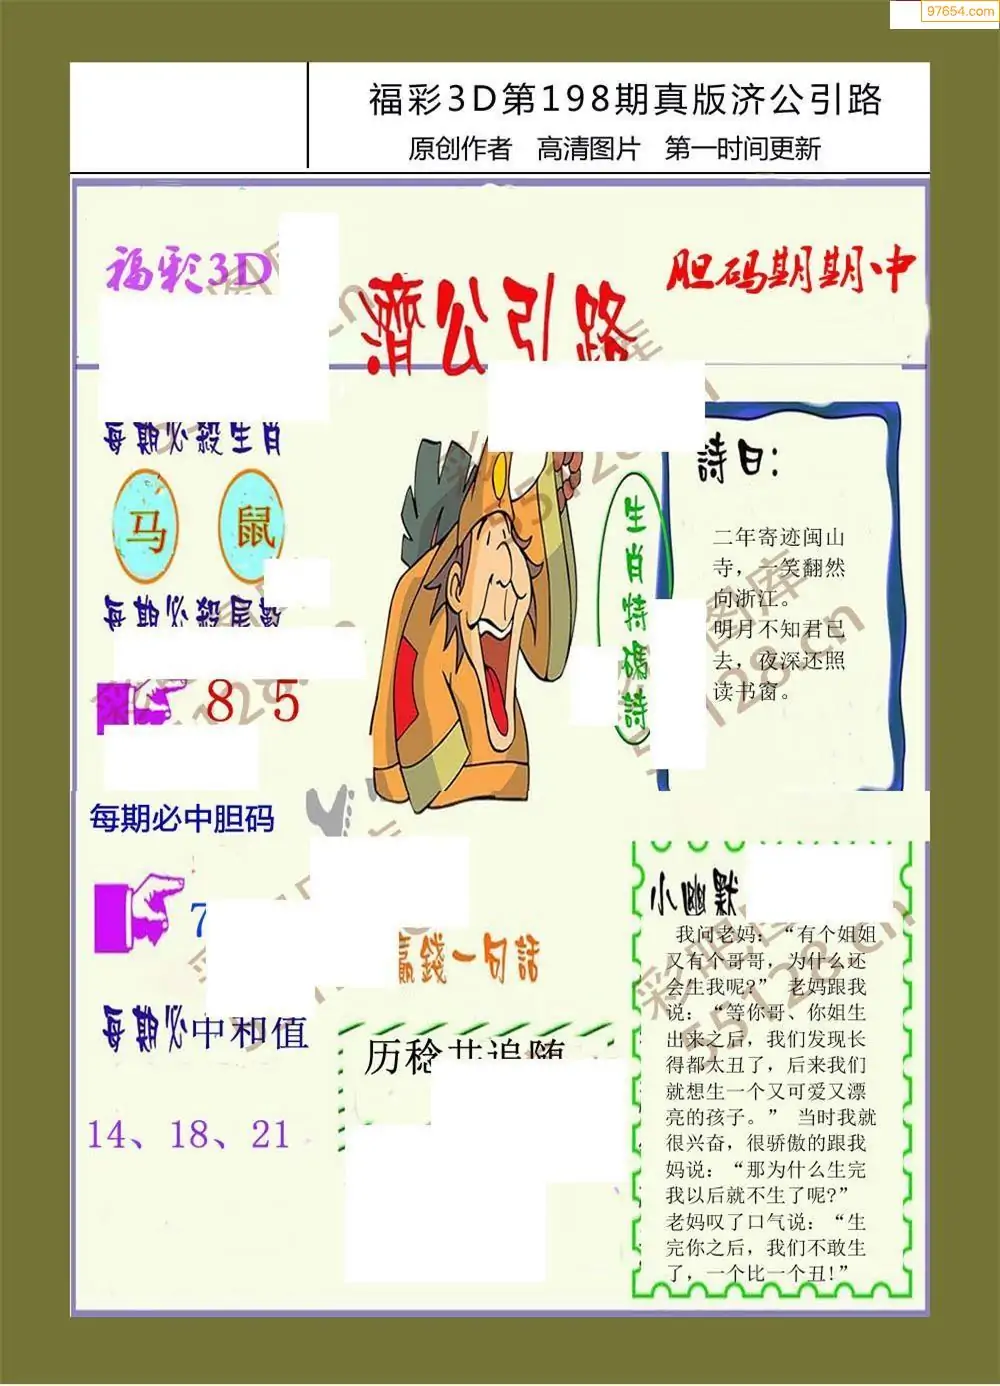 97654.com
福彩3D第198期真版济公引路
原创作者 高清图片 第一时间更新
福彩3D
濟公引路
胆码期期中
每期必殺生肖
马 鼠
每期必殺尾數
8 5
每期必中胆码
7
每期必中和值
14、18、21
生肖特碼詩
詩曰:
二年寄迹闽山
寺，一笑翻然
向浙江。
明月不知君已
去，夜深还照
读书窗。
赢錢一句話
历稔共追随
小幽默
我问老妈：“有个姐姐
又有个哥哥，为什么还
会生我呢?” 老妈跟我
说：“等你哥、你姐生
出来之后，我们发现长
得都太丑了，后来我们
就想生一个又可爱又漂
亮的孩子。” 当时我就
很兴奋，很骄傲的跟我
妈说：“那为什么生完
我以后就不生了呢?”
老妈叹了口气说：“生
完你之后，我们不敢生
了，一个比一个丑!”
彩吧图库
55128.cn